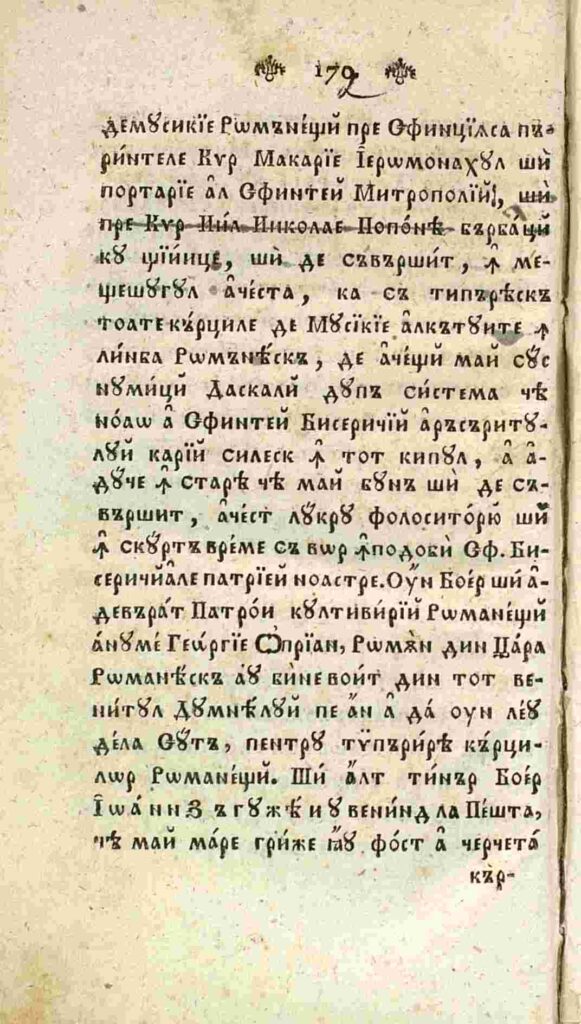 179
демꙋсикїе Рѡмъне́щй пре Сфинцїѧса пъ-
ри́нтеле Кѵр Макарїе І҆ерѡмонахꙋл шѝ
портарїе а҆л Сфинтей Митрополїй, шѝ
пре Кѵр Ни́л Николае Попо́нѣ бърба́цй
кꙋ щїи́нце, шѝ де съвършит, ꙟ҆ ме-
щешꙋгꙋл а҆че́ста, ка съ типърѣскъ
тоате кърциле де Мꙋсікїе а҆лкътꙋите ꙟ҆
ли́мба Рѡмънѣ́скъ, де а҆че́щй май сꙋс
нꙋмицй Даскалй дꙋпъ систе́ма чѣ
но́аѡ а҆ Сфинтей Бисери́чїй а҆ръсъритꙋ-
лꙋй карїй силеск ꙟ҆ тот кипꙋл, а҆ а҆-
дꙋче ꙟ҆ старѣ чѣ май бꙋнъ шѝ де съ-
вършит, а҆че́ст лꙋкрꙋ фолосито́рю шѝ
ꙟ҆ скꙋртъ вре́ме съ вѡр ꙟ҆подобѝ Сф. Би-
серичйа҆ле патрїей ноастре. Оу҆н Бое́р шѝ а҆-
девъра́т Патро́н кꙋлтиви́рїй Рѡмане́щй
а҆нꙋме́ Геѡ́ргїе Ѻпрїан, Рѡмѫ́н дин Ца́ра
Рѡманѣ́скъ аꙋ би́не вои́т дин тот ве-
ни́тꙋл Дꙋмнѣлꙋй пе а҆н а҆ да́ оун ле́ꙋ
де́ла Сꙋтъ, пентрꙋ тѷпъри́рѣ кърци-
лѡр Рѡмане́щй. Шѝ а҆лт ти́нър Бое́р
І҆ѡа́нн Зъгꙋже́нꙋ вени́нд ла Пе́ща,
чѣ май ма́ре гри́же ꙗ҆ꙋ фо́ст а҆ черчета́
кър-